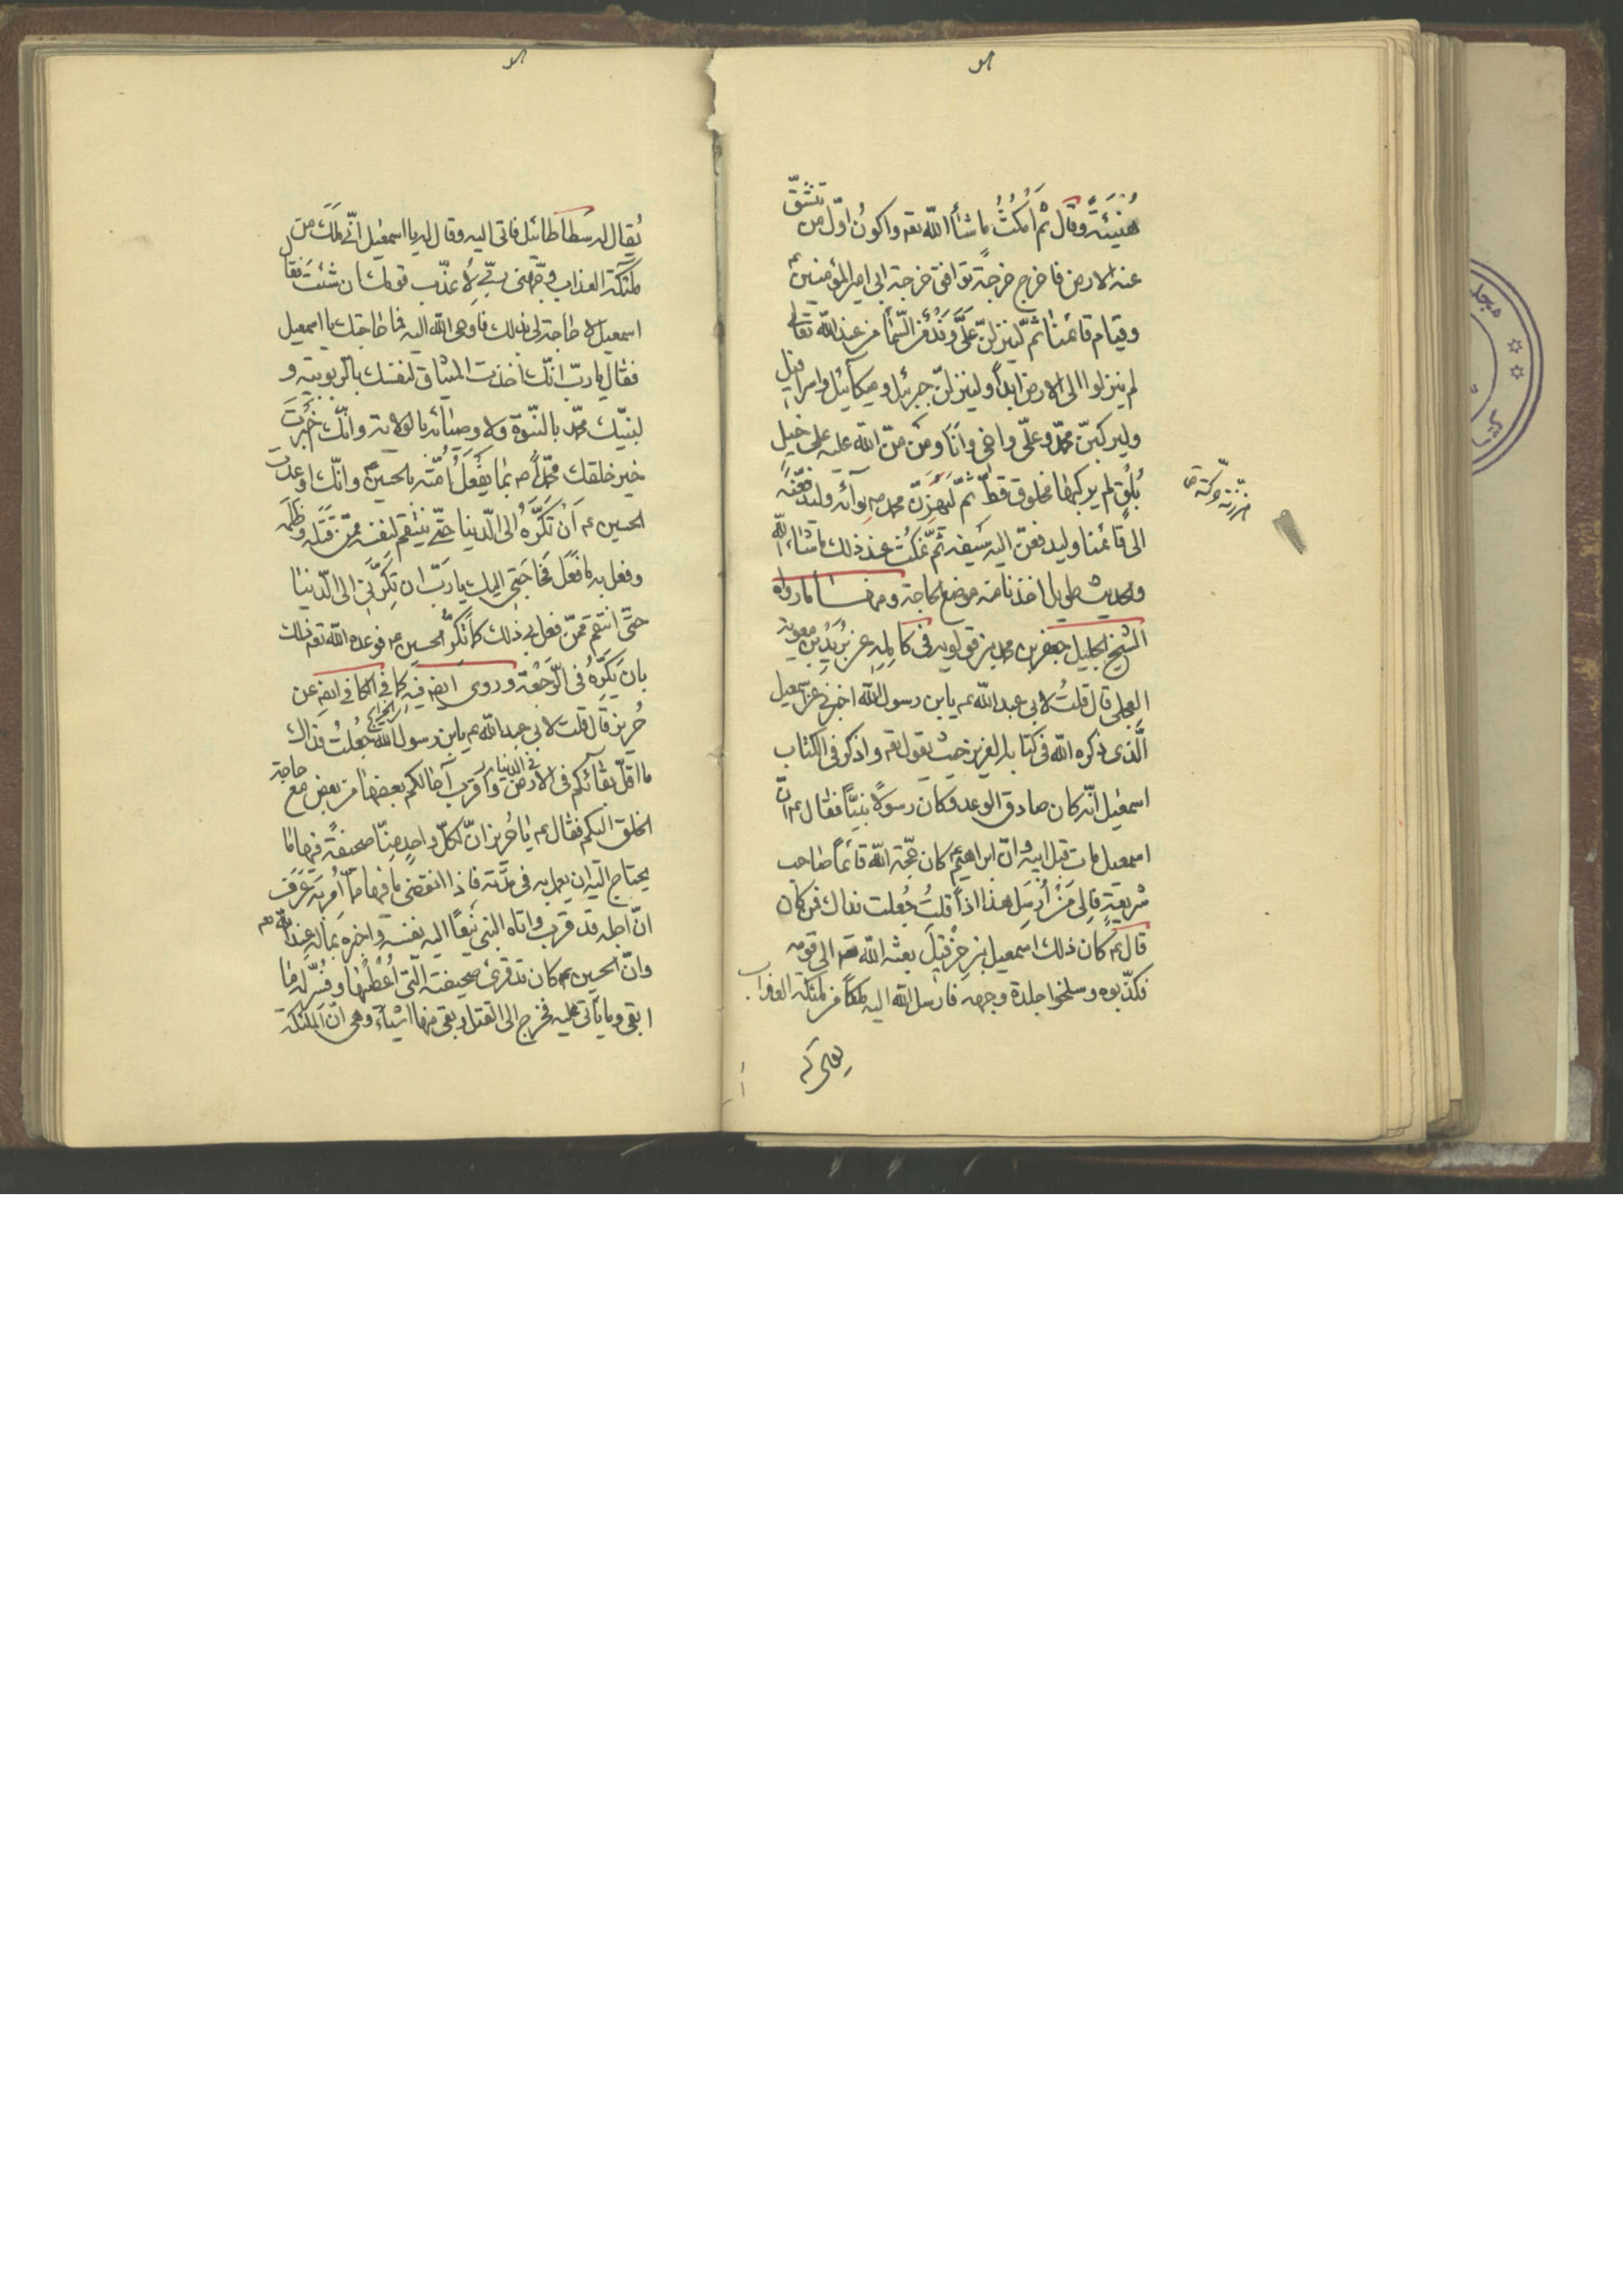 هُنَيئَةً وقال ثم امكُثُ ماشأ الله تعه واكونُ اوّل من تنشقّ
عنه الارض فاخرج خرجةً توافق خرجة ابي امير المؤمنين ع
وقيام قائمنا ثمّ لينزلنّ عَلَىَّ وَفْدٌ من السّمأ من عند الله تعالى
لم ينزلوا الى الارض ابداً ولينزلنّ جبرئيل وميكآئيل واسرافيل
وليركبنّ محمّد وعلىّ واخى وانا ومن منّ الله عليه على خيل
بُلْقٍ لم يركبها مخلوق قطّ ثمّ لَيَهُزَّنّ محمد ص لوآئه وليدفعنّه
الى قائمنا وليدفعنّ اليه سيفه ثمّ نمكُث عند ذلك ماشاء الله
والحديث طويل اخذنا منه موضع الحاجة ومنها ما رواه
الشيخ الجليل جعفر بن محمد بن قولويه فى كامله عن بُرَيْد بن معوية
العجلى قال قلتُ لابى عبد الله عم يابن رسول الله اخبرنى عن اسمعيل
الّذى ذكره الله فى كتابه العزيز حيث يقول تعه واذكر فى الكتاب
اسمعيل انّه كان صادق الوعد وكان رسولاً نبيّاً فقال عم انّ
اسمعيل مات قبل ابيه وانّ ابراهيم ع كان حجّة الله قائماً صاحب
شريعةٍ فالى مَنْ اُرْسِل هذا اذاً قلتُ جُعلت فداك فمن كان
قال عم كان ذلك اسمعيل بن حِزْقيل بعثه الله تعه الى قومه
فكذّبوه وسلخوا جلدة وجهه فارسل الله اليه ملكاً من ملئكة العذاب
يُقال له سطاطائيل فاتى اليه وقال له يا اسمعيل انّى مَلَك من
ملئكة العذاب وجّهنى ربّى لاُعذّب قومك ان شئتَ فقال
اسمعيل لا حاجة لى بذلك فاوحى الله اليه فما حاجتك يا اسمعيل
فقال يا ربّ انّك اخذت الميثاق لنفسك بالرّبوبيّة و
لنبيّك محمّد بالنّبوة ولاوصيائه بالولاية وانّك خَبَّرتَ
خير خلقك محمّداً ص بما يفعَلُ اُمّته بالحسين ع وانّك اوعدت
الحسين ع اَن تَكُرَّهُ الى الدّنيا حتّى ينتقم لنفسه ممّن قَتَلَه وظَلَمَه
وفعل به ما فَعَل فحاجَتى اليك يا رَبّ ان تكرّنى الى الدّنيا
حتّى انتقم ممّن فعل بى ذلك كما تَكُرُّ الحسين ع فوعده الله تعه ذلك
بان يَكُرّهُ فى الرّجعة وروى ايضا فيه كما فى الكافى ايضا عن
حُريز قال قلت لابى عبد الله عم يابن رسول الله جُعلتُ فداك
ما اقلّ بقائكم فى الارض واقرب آجالكم بعضها من بعض مع حاجة
الخلق اليكم فقال عم يا حُريز انّ لكلّ واحدٍ مِنّا صحيفةً فيها ما
يحتاج اليه ان يعمل به فى مدّته فاذا انقضى ما فيها ممّا اُمِر به عَرَفَ
انّ اجله قد قرب واتاه النبى نَعياً اليه نفسه واخبره بما له عند الله
وانّ الحسين عم كان قد قرئ صحيفته الّتى اُعْطِيَها وفُسِّر له ما
ابقى وما يأتى عليه فخرج الى القتل وبقى منها اشيآء وهى انّ الملئكة